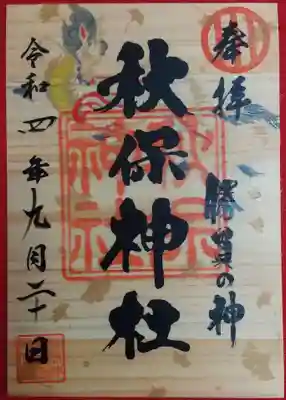 奉拝
勝負の神
秋保神社
令和四年九月二十日